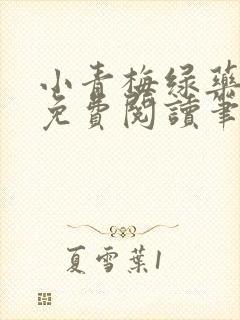 小青梅绿药
免費閱讀筆
夏雪葉1